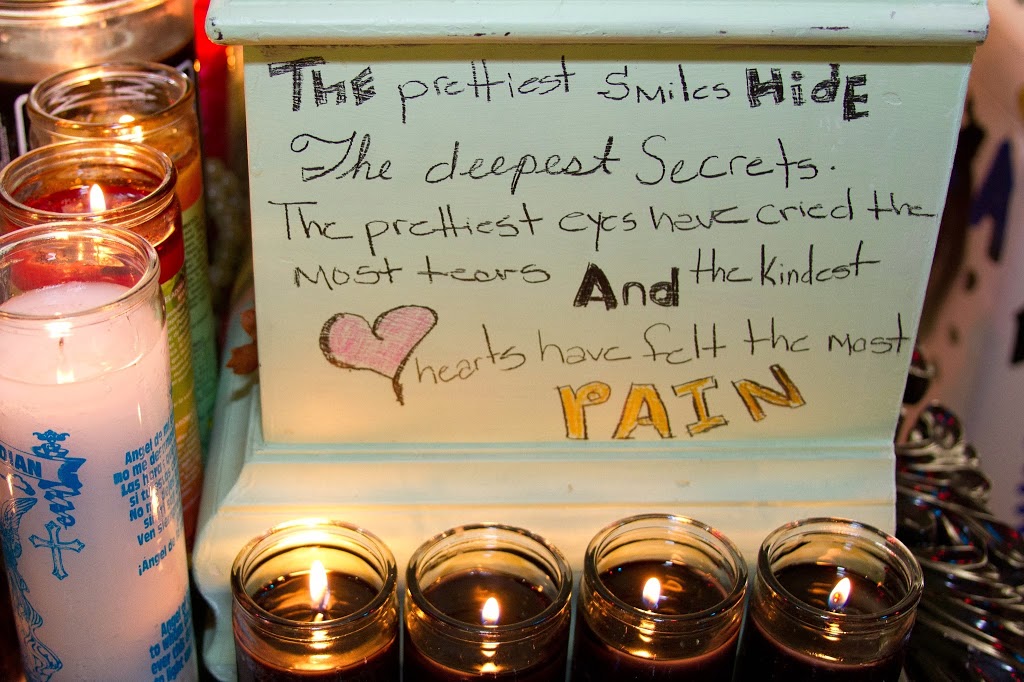 THE prettiest Smiles HidE
The deepest Secrets.
The prettiest eyes have cried the
Most tears And the kindest
hearts have felt the Most
PAIN
DIAN
Angel de mi
no me de
Las hora
si tu
No m
sin
Ven s
¡Angel de
Angel
to w
ever